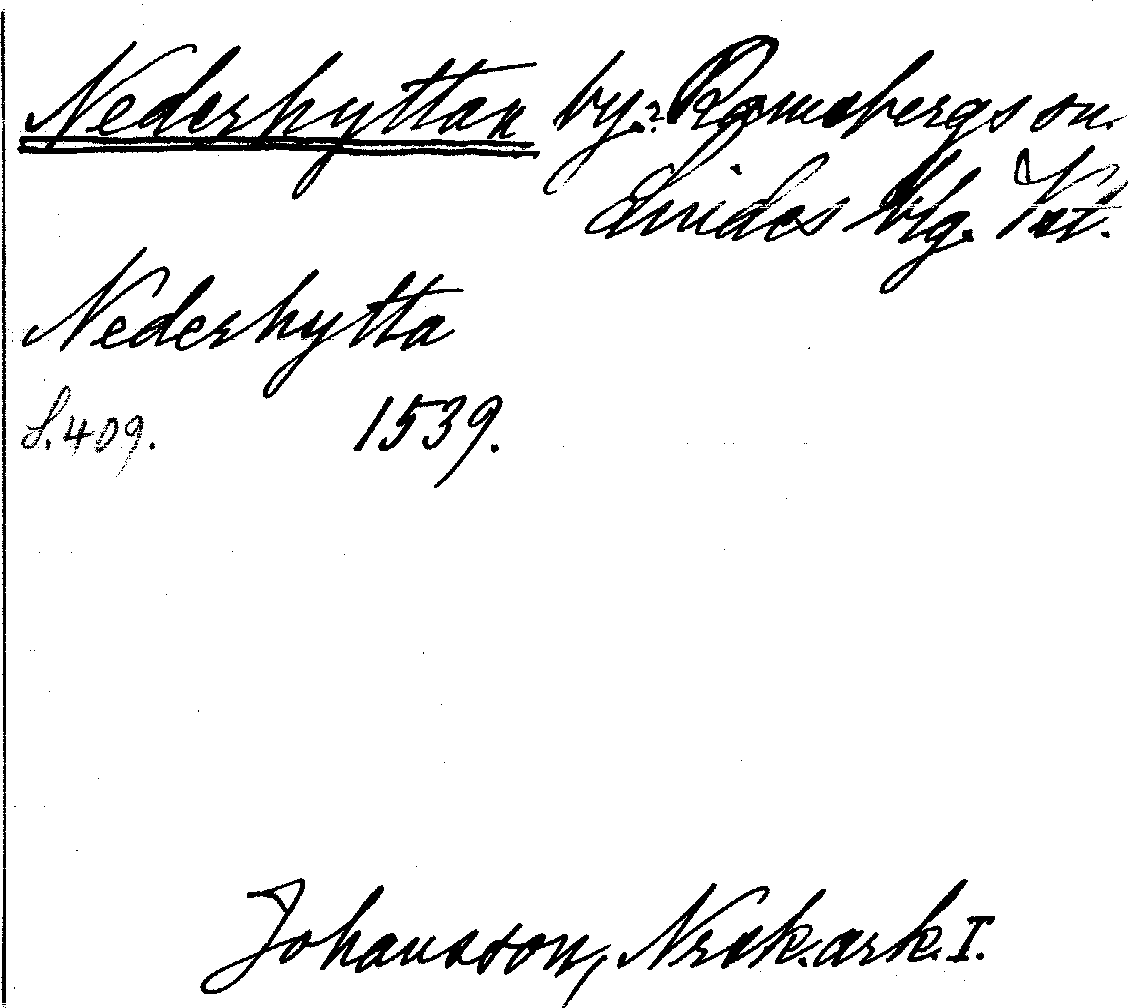 Nederhyttan by. Ramsbergs sn.
Lindes blg. Vstm.
Nederhytta
S. 409. 1539.
Johansson, Nrsk. ark. I.